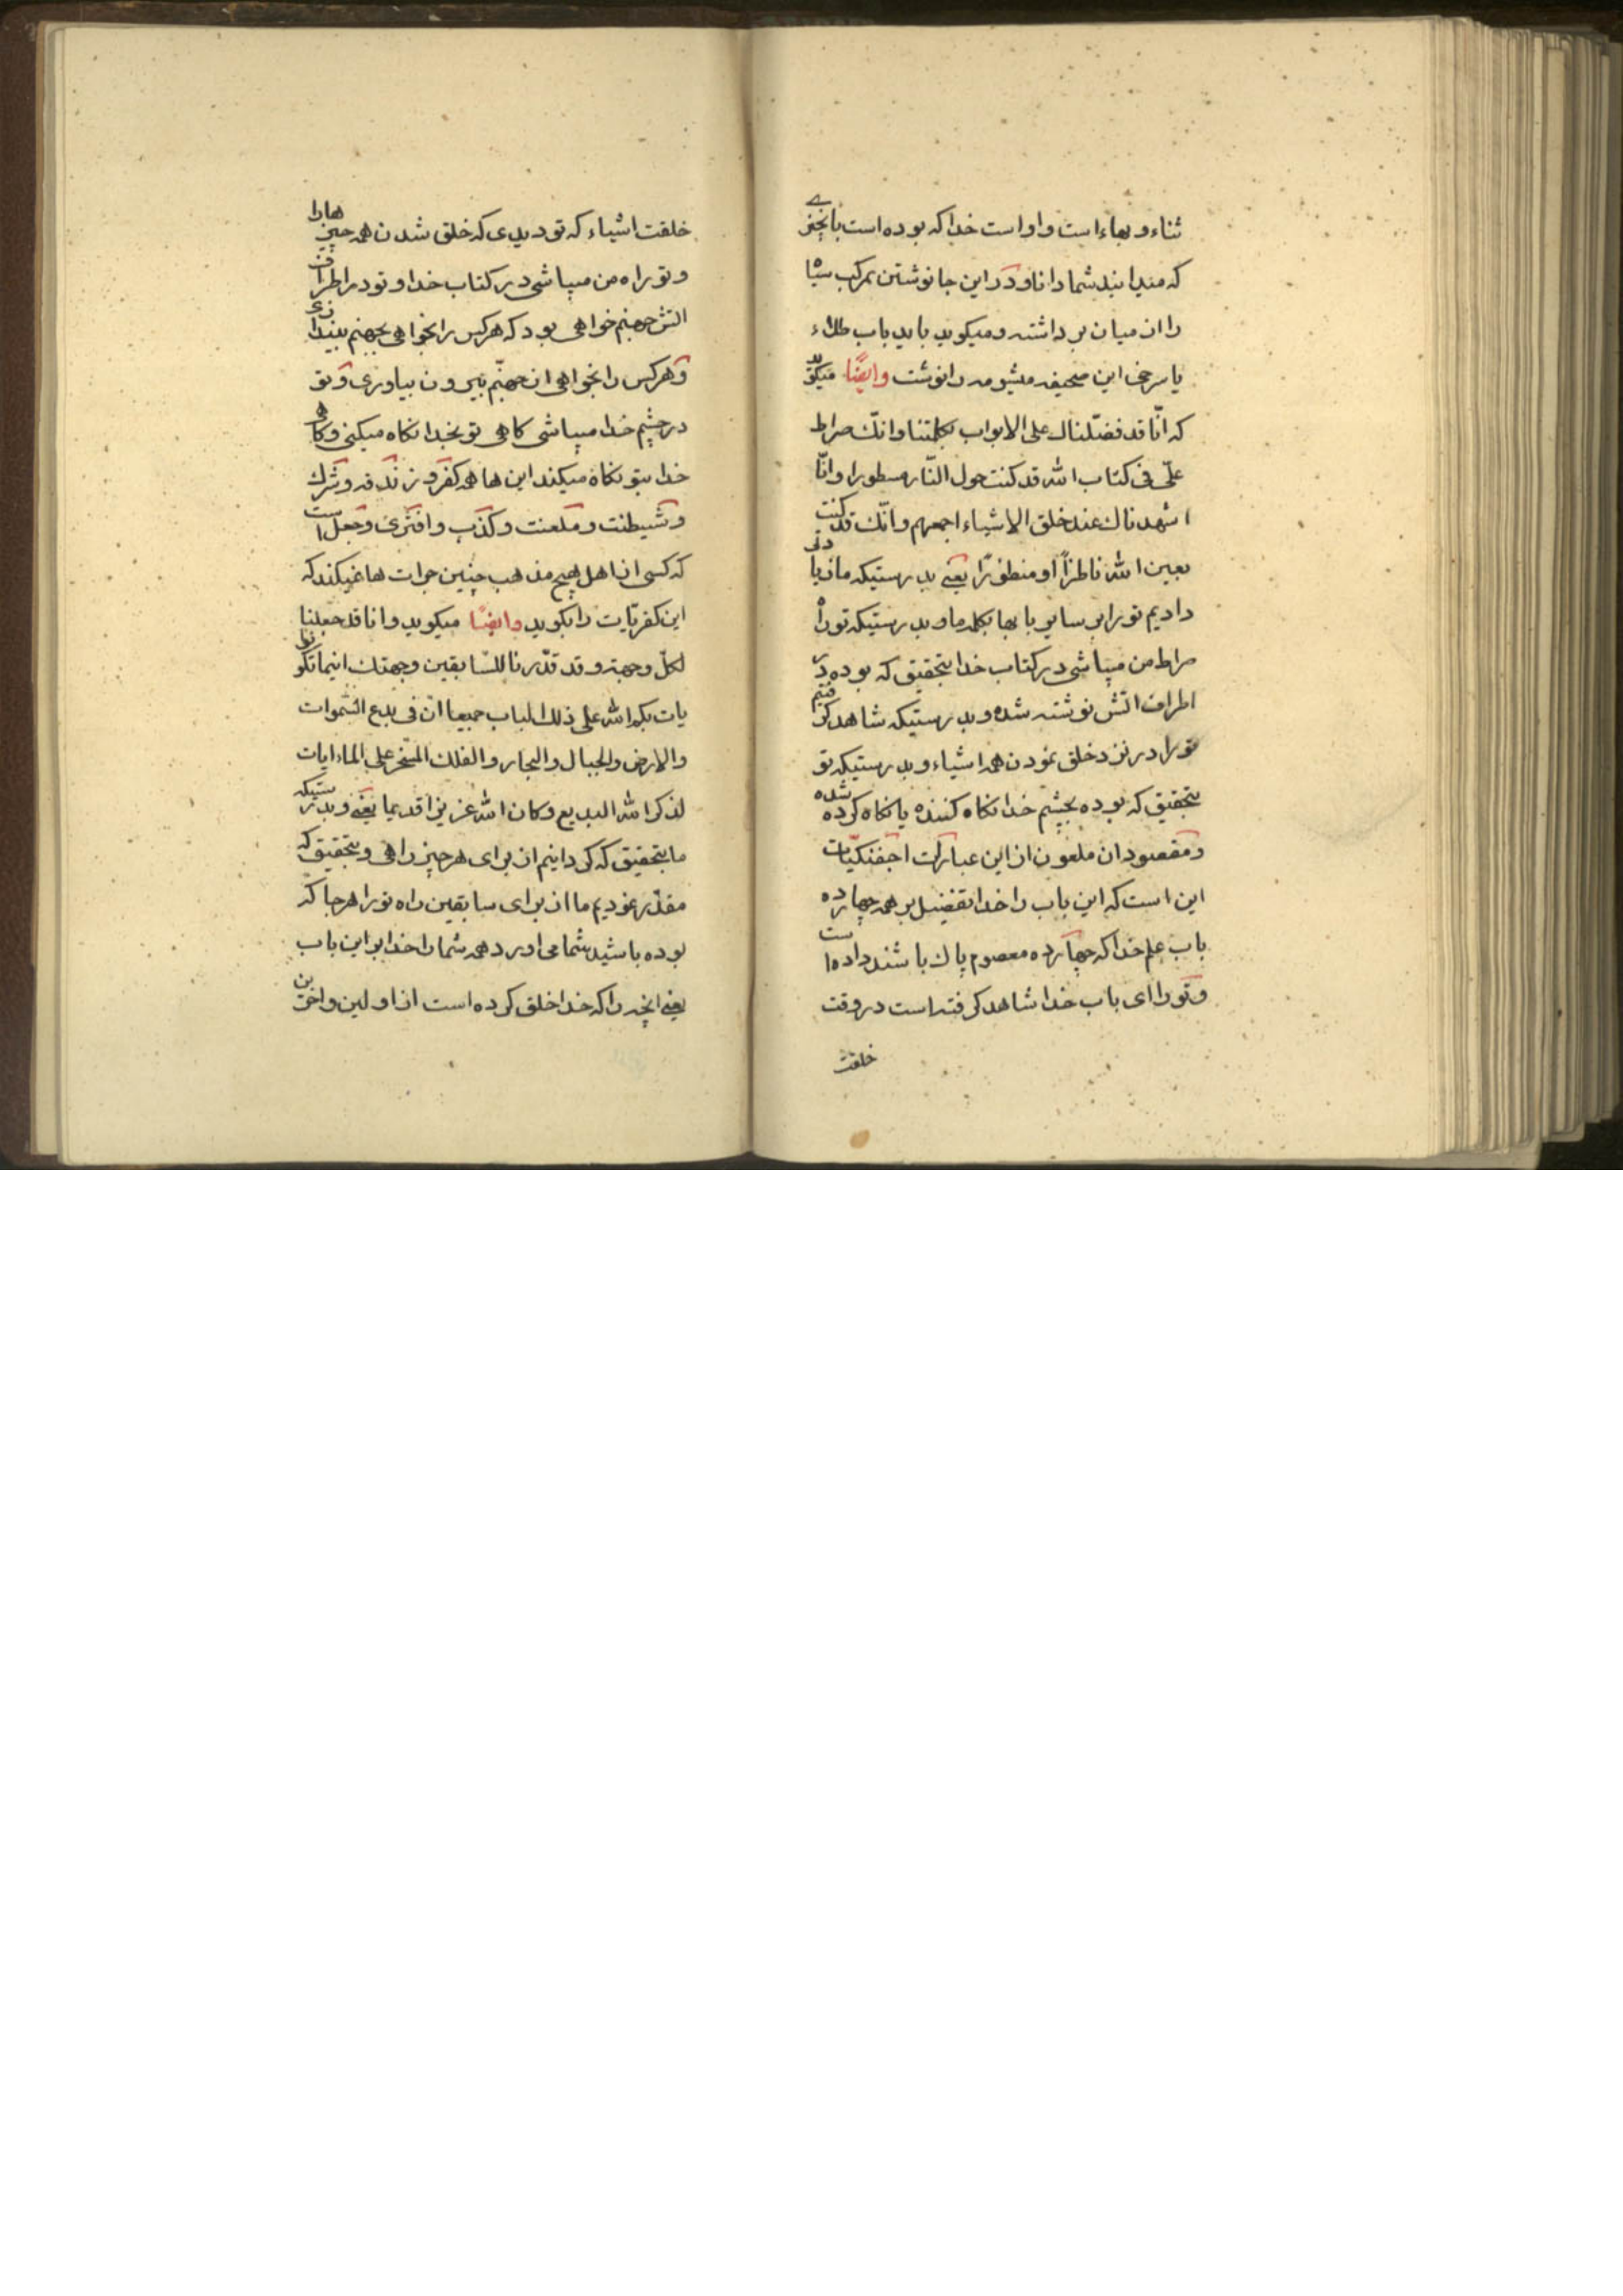 ثناء و بهاء است و او است خدا که بوده است بانچیزے
که میدانید شما دانا و در این جا نوشتن بمرکب سیاه
را از میان برداشته و میکوید باید باب طلاء
یا سرخی این صحیفه میشومه را نوشت وایضًا میکوید
که انّا قد فضّلناك علی الابواب بکلمتنا و انّك صراط
علیّ فی کتاب الله قد کنت حول النّار مسطورا و انّا
اشهدناك عند خلق الاشیاء اجمعهم و انّك قد کنت
بعین الله ناظراً او منظورًا یعنے بدرستیکه ما زیادتی
دادیم تو را بر سایر بابها بکلمه ما و بدرستیکه تو راه
صراط من میباشی در کتاب خدا بتحقیق که بوده در
اطراف اتش نوشته شده و بدرستیکه شاهد کرفتیم
تو را در نزد خلق نمودن همه اشیاء و بدرستیکه تو
بتحقیق که بوده بچشم خدا نکاه کننده یا نکاه کرده شده
و مقصود ان ملعون از این عبارات اجفنکیّات
این است که این باب را خدا تفضیل بر همه چهارده
باب علم خدا که چهارده معصوم پاك باشند داده است
و تو را ای باب خدا شاهد کرفته است در وقت
خلقت
خلقت اشیاء که تو دیدی که خلق شدن همه چیزهارا
و تو راه من میباشی در کتاب خدا و تو در اطراف
اتش جهنم خواهی بود که هرکس را بخواهی بجهنم بیندازی
و هرکس را بخواهی از جهنّم بیرون بیاوری و تو
در چشم خدا میباشی کاهی تو بخدا نکاه میکنی و کاهی
خدا بتو نکاه میکند این ها همه کفر و زندقه و شرك
و شیطنت و ملعنت و کذب و افتری و جعل است
که کسی از اهل هیچ مذهب چنین جرات ها نمیکند که
این کفریّات را بکوید وایضًا میکوید و انا قد جعلنا
لکلّ وجهة و قد قدّرنا للسّابقین وجهتك اینما تکونوا
یات بکم الله علی ذلك الباب جمیعا انّ فی بدع السّموات
والارض والجبال والبحار و الفلك المسخّر علی الماء ایات
لذکر الله البدیع و کان الله عزیزا قدیما یعنے و بدرستیکه
ما بتحقیق که کردانیم از برای هر چیز راهی و بتحقیق که
مقدّر نمودیم ما از برای سابقین راه تو را هرجا که
بوده باشید شما می اورد همه شما را خدا بر این باب
یعنے انچه را که خدا خلق کرده است از اولین و اخرین